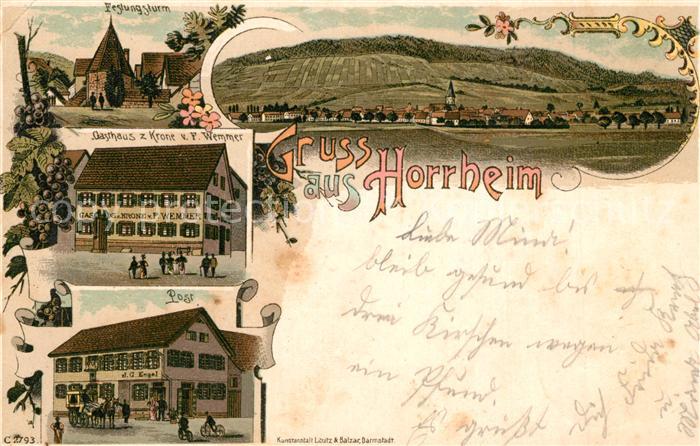 Festungsturm
Gasthaus z Krone v. F. Wemmer
GASTHAUS z. KRONE v. F. WEMMER
Gruss
aus Horrheim
Post
J. G. Engel
Liebe Mina!
bleib gesund bis
drei Kirschen wegen
ein Pfund.
Es grüßt Dich
C 2793.
Kunstanstalt Lautz & Balzar, Darmstadt.